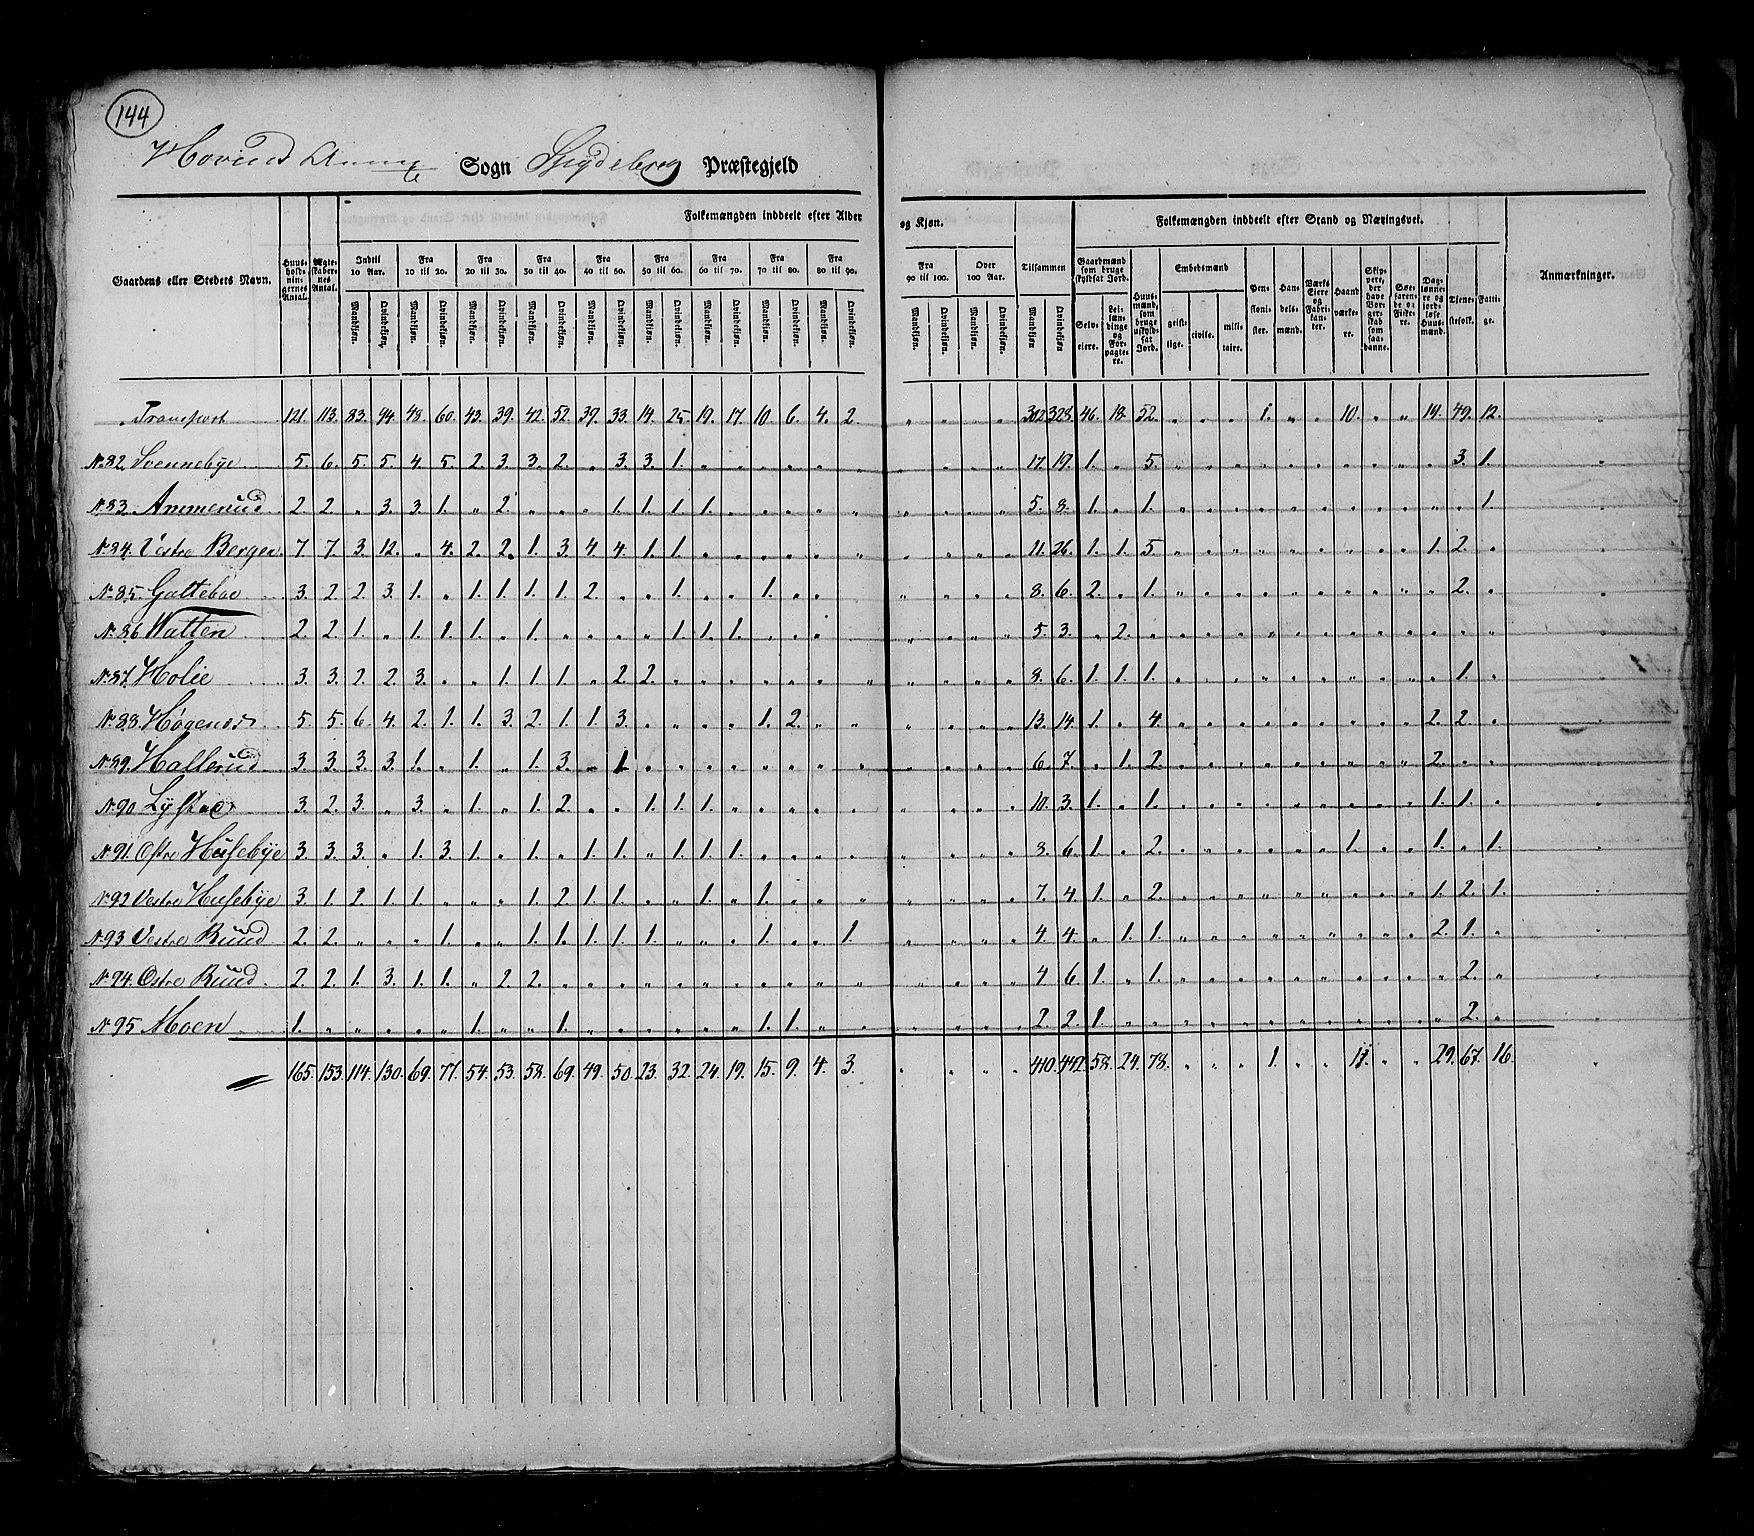 144
Hovind Annex Sogn Spydeberg Præstegjeld
Folkemængden inddeelt efter Alder og Kjøn. Folkemængden inddeelt efter Stand og Næringsvei.
Gaardens eller Stedets Navn. Huusholdningernes Antal. Ægteskabernes Antal. Indtil 10 Aar. Fra 10 til 20. Fra 20 til 30. Fra 30 til 40. Fra 40 til 50. Fra 50 til 60. Fra 60 til 70. Fra 70 til 80. Fra 80 til 90. Fra 90 til 100. Over 100 Aar. Tilsammen Gaardmænd som bruge skyldsat Jord. Huusmænd, som bruge uskyldsat Jord. Embedsmænd Pensionister. Handelsmænd. Værks Eiere og Fabrikanter. Haandværkere. Skippere, der have Borgerskab som saadanne. Søefarende og Fiskere. Daglønnere og jordløse Huusmænd. Tjenestefolk. Fattige. Anmærkninger.
Mandkjøn. Qvindekjøn. Mandkjøn. Qvindekjøn. Mandkjøn. Qvindekjøn. Mandkjøn. Qvindekjøn. Mandkjøn. Qvindekjøn. Mandkjøn. Qvindekjøn. Mandkjøn. Qvindekjøn. Mandkjøn. Qvindekjøn. Mandkjøn. Qvindekjøn. Mandkjøn. Qvindekjøn. Mandkjøn. Qvindekjøn. Mandkjøn Qvindekjøn Selveiere. Leilændinge og Forpagtere. geistlige. civile. militaire.
Transport 121. 113. 83. 94. 48. 60. 43. 39. 42. 52. 39. 33. 14. 25. 19. 17. 10. 6. 4. 2. „ „ „ „ 302. 328. 46. 18. 52. „ „ „ 1. „ „ 10. „ „ 19. 49. 12.
No 82. Svennebye 5. 6. 5. 5. 4. 5. 2. 3. 3. 2. „ 3. 3. 1. „ „ „ „ „ „ „ „ „ „ 17. 19. 1. „ 5. „ „ „ „ „ „ „ „ „ „ 3. 1.
No 83. Ammerud 2. 2. „ 3. 3. 1. „ 2. „ „ „ 1. 1. 1. 1. „ „ „ „ „ „ „ „ „ 5. 8. 1. „ 1. „ „ „ „ „ „ „ „ „ „ „ 1.
No 84. Vestre Bergen 7. 7. 3. 12. „ 4. 2. 2. 1. 3. 4. 4. 1. 1. „ „ „ „ „ „ „ „ „ „ 11. 26. 1. 1. 5 „ „ „ „ „ „ „ „ „ 1. 2. „
No 85. Galteboe 3. 2. 2. 3. 1. „ 1. 1. 1. 1. 2. „ „ 1. „ „ 1. „ „ „ „ „ „ 8. 6. 2. „ 1. „ „ „ „ „ „ „ „ „ „ 2. „
No 86 Watten 2. 2. 1. „ 1. 1. 1. „ 1. „ „ „ „ 1. 1. 1. „ „ „ „ „ „ „ 5. 3. „ 2. „ „ „ „ „ „ „ „ „ „ „ „ „
No 87. Holie 3. 3. 2. 2. 3. „ „ 1. 1. 1. „ 2. 2. „ „ „ „ „ „ „ „ „ „ „ 8. 6. 1. 1. 1. „ „ „ „ „ „ „ „ „ „ 1. „
No 88. Høgenes 5. 5. 6. 4. 2. 1. 1. 3. 2. 1. 1. 3. „ „ „ „ 1. 2. „ „ „ „ „ „ 13. 14. 1. „ 4. „ „ „ „ „ „ „ „ „ 2. 2. „
No 89. Hallerud 3. 3. 3. 3. 1. „ 1. „ 1. 3. „ 1. „ „ „ „ „ „ „ „ „ „ „ „ 6. 7. „ 1. 2. „ „ „ „ „ „ „ „ „ 2. „ „
No 90. Lystad 3. 2. 3. „ 3. „ 1. „ 1. 2. „ „ 1. 1. 1. „ „ „ „ „ „ „ „ „ 10. 3. 1. „ 1. „ „ „ „ „ „ „ „ „ 1. 1. „
No 91. Østre Husebye 3. 3. 3. „ 1. 3. 1. „ 1. „ 1. 1. „ 1. 1. 1. „ „ „ „ „ „ „ „ 8. 6. 1. „ 2. „ „ „ „ „ „ 1. „ „ 1. „ 1.
No 92 Vestre Husebye 3. 1. 2. 1. 1. „ „ „ 1. 2. 1. 1. „ „ 1. „ 1. „ „ „ „ „ „ „ 7. 4. 1. „ 2. „ „ „ „ „ „ „ „ „ 1. 2. 1.
No 93 Vestre Ruud 2. 2. „ „ „ 1. „ „ 1. 1. 1. 1. 1. „ „ „ 1. „ „ 1. „ „ „ „ 4 4. „ 1. 1. „ „ „ „ „ „ „ „ „ 2. 1. „
No 94. Østre Ruud 2. 2. 1. 3. 1. 1. „ 2. 2. „ „ „ „ „ „ „ „ „ „ „ „ „ „ „ 4 6 1. „ 1. „ „ „ „ „ „ „ „ „ „ 2. „
No 95 Moen 1. „ „ „ „ „ 1. „ „ 1. „ „ „ „ „ „ 1. 1. „ „ „ „ „ „ 2. 2. 1. „ „ „ „ „ „ „ „ „ „ „ „ 2. „
165. 153. 114. 130. 69. 77. 54. 53. 58. 69. 49. 50. 23. 32. 24. 19. 15. 9. 4. 3. „ „ „ „ 410. 442. 58. 24. 78. „ „ „ 1. „ „ 11. „ „ 29. 67. 16.